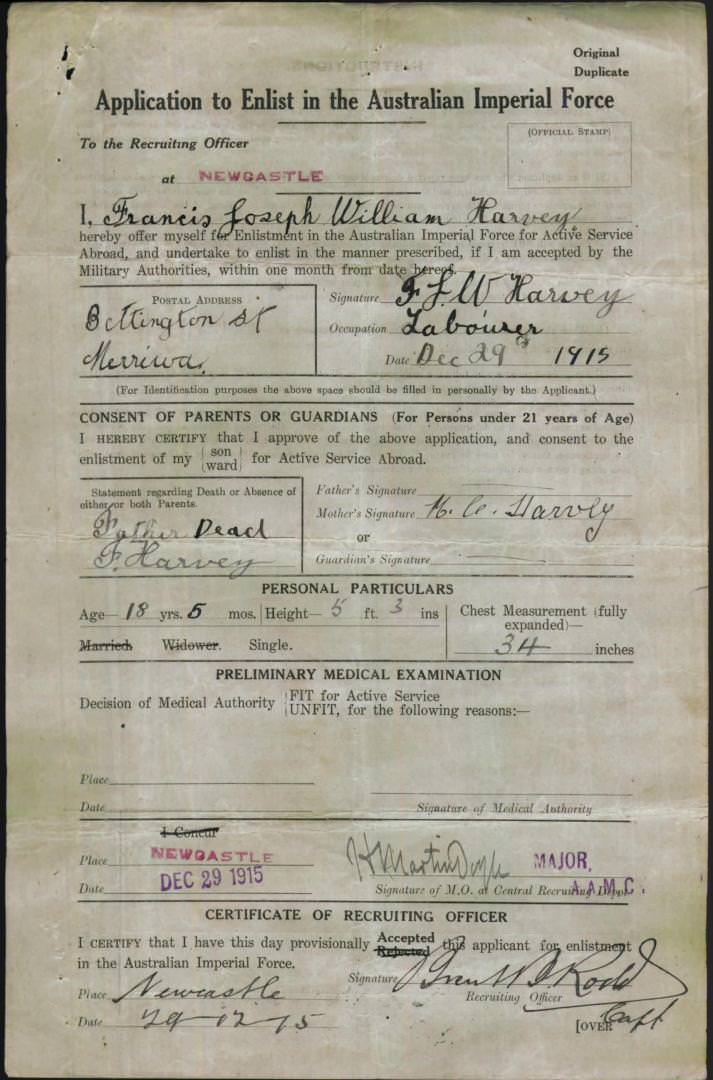 Original
Duplicate
Application to Enlist in the Australian Imperial Force
To the Recruiting Officer
(OFFICIAL STAMP)
at NEWCASTLE
I, Francis Joseph William Harvey
hereby offer myself for Enlistment in the Australian Imperial Force for Active Service
Abroad, and undertake to enlist in the manner prescribed, if I am accepted by the
Military Authorities, within one month from date hereof.
POSTAL ADDRESS
Bettington St
Merriwa.
Signature F J W Harvey
Occupation Labourer
Date Dec 29th 1915
(For Identification purposes the above space should be filled in personally by the Applicant.)
CONSENT OF PARENTS OR GUARDIANS (For Persons under 21 years of Age)
I HEREBY CERTIFY that I approve of the above application, and consent to the
enlistment of my (son
ward) for Active Service Abroad.
Statement regarding Death or Absence of
either or both Parents.
Father Dead
F. Harvey
Father's Signature
Mother's Signature Harvey
or
Guardian's Signature
PERSONAL PARTICULARS
Age— 18 yrs. 5 mos. Height— 5 ft. 3 ins
Chest Measurement (fully
expanded)—
34 inches
Married. Widower. Single.
PRELIMINARY MEDICAL EXAMINATION
Decision of Medical Authority {FIT for Active Service
{UNFIT, for the following reasons:—
Place
Date
Signature of Medical Authority
I Concur
Place NEWCASTLE
Date DEC 29 1915
H Martin Doyle MAJOR,
Signature of M.O. at Central Recruiting Depot A.A.M.C.
CERTIFICATE OF RECRUITING OFFICER
I CERTIFY that I have this day provisionally Accepted
Rejected this applicant for enlistment
in the Australian Imperial Force.
Signature Rodd
Recruiting Officer
Capt
Place Newcastle
Date 29-12-15
[OVER